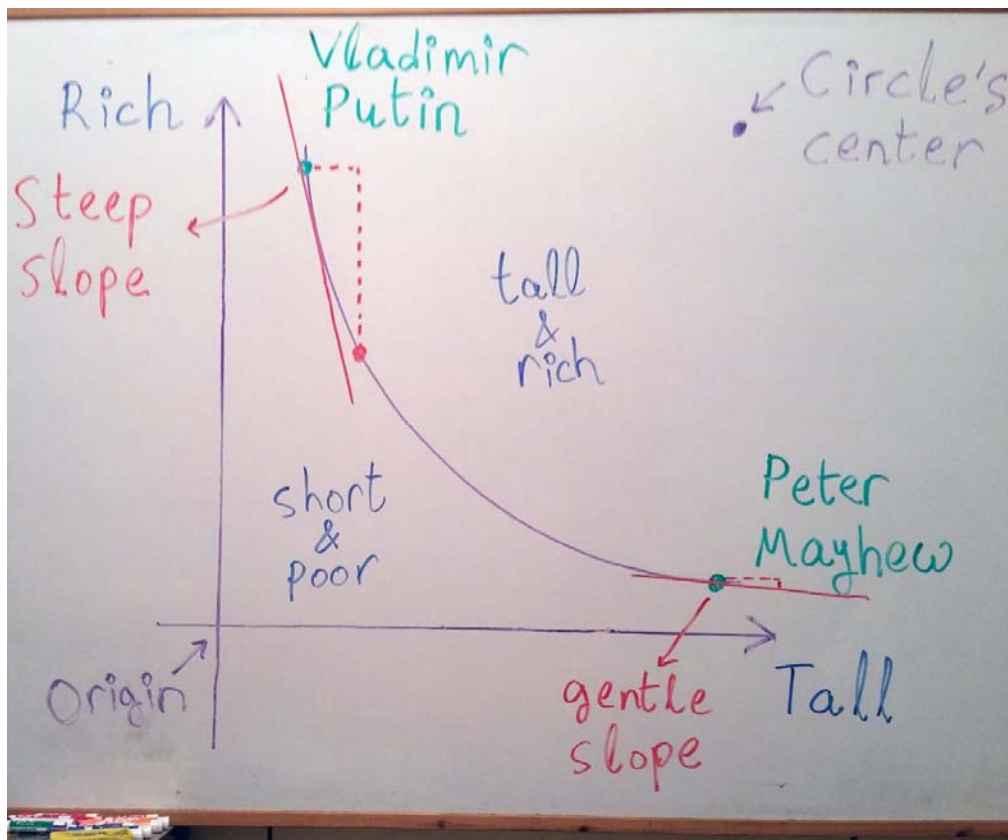 Vladimir
Putin
Rich
Circle's
center
Steep
slope
tall
&
rich
short
&
poor
Peter
Mayhew
Origin
gentle
slope
Tall